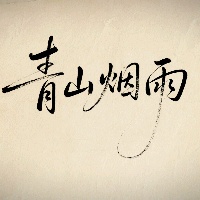 青山烟雨